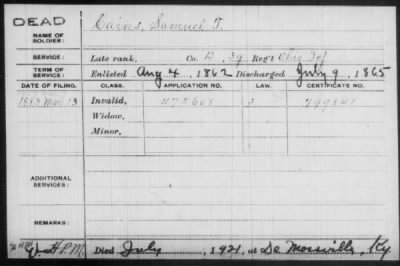 DEAD
NAME OF SOLDIER: Cains, Samuel T.
SERVICE: Late rank, Co. B, 39 Reg't Ohio Inf
TERM OF SERVICE: Enlisted Aug 4, 1862 Discharged July 9, 1865
DATE OF FILING. CLASS. APPLICATION NO. LAW. CERTIFICATE NO.
1883 Mar 13 Invalid, 475608
Widow,
Minor,
ADDITIONAL SERVICES:
REMARKS:
Died July, 1921, at De Mossville, Ky